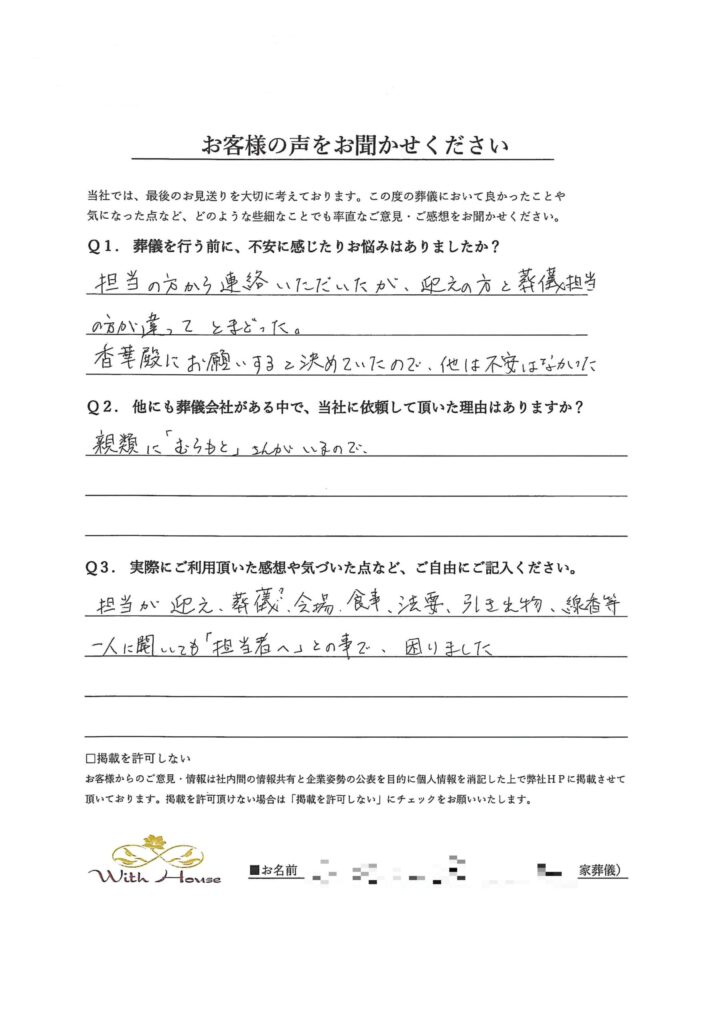 お客様の声をお聞かせください
当社では、最後のお見送りを大切に考えております。この度の葬儀において良かったことや
気になった点など、どのような些細なことでも率直なご意見・ご感想をお聞かせください。
Q1．葬儀を行う前に、不安に感じたりお悩みはありましたか？
担当の方から連絡いただいたが、迎えの方と葬儀担当
の方が違って とまどった。
香華殿にお願いすると決めていたので、他は不安はなかった
Q2．他にも葬儀会社がある中で、当社に依頼して頂いた理由はありますか？
親類に「むらもと」さんがいるので、
Q3．実際にご利用頂いた感想や気づいた点など、ご自由にご記入ください。
担当が 迎え、葬儀?、会場、食事、法要、引き出物、線香等
一人に聞いても「担当者へ」との事で、困りました
□掲載を許可しない
お客様からのご意見・情報は社内間の情報共有と企業姿勢の公表を目的に個人情報を消記した上で弊社HPに掲載させて
頂いております。掲載を許可頂けない場合は「掲載を許可しない」にチェックをお願いいたします。
With House
■お名前 家葬儀）